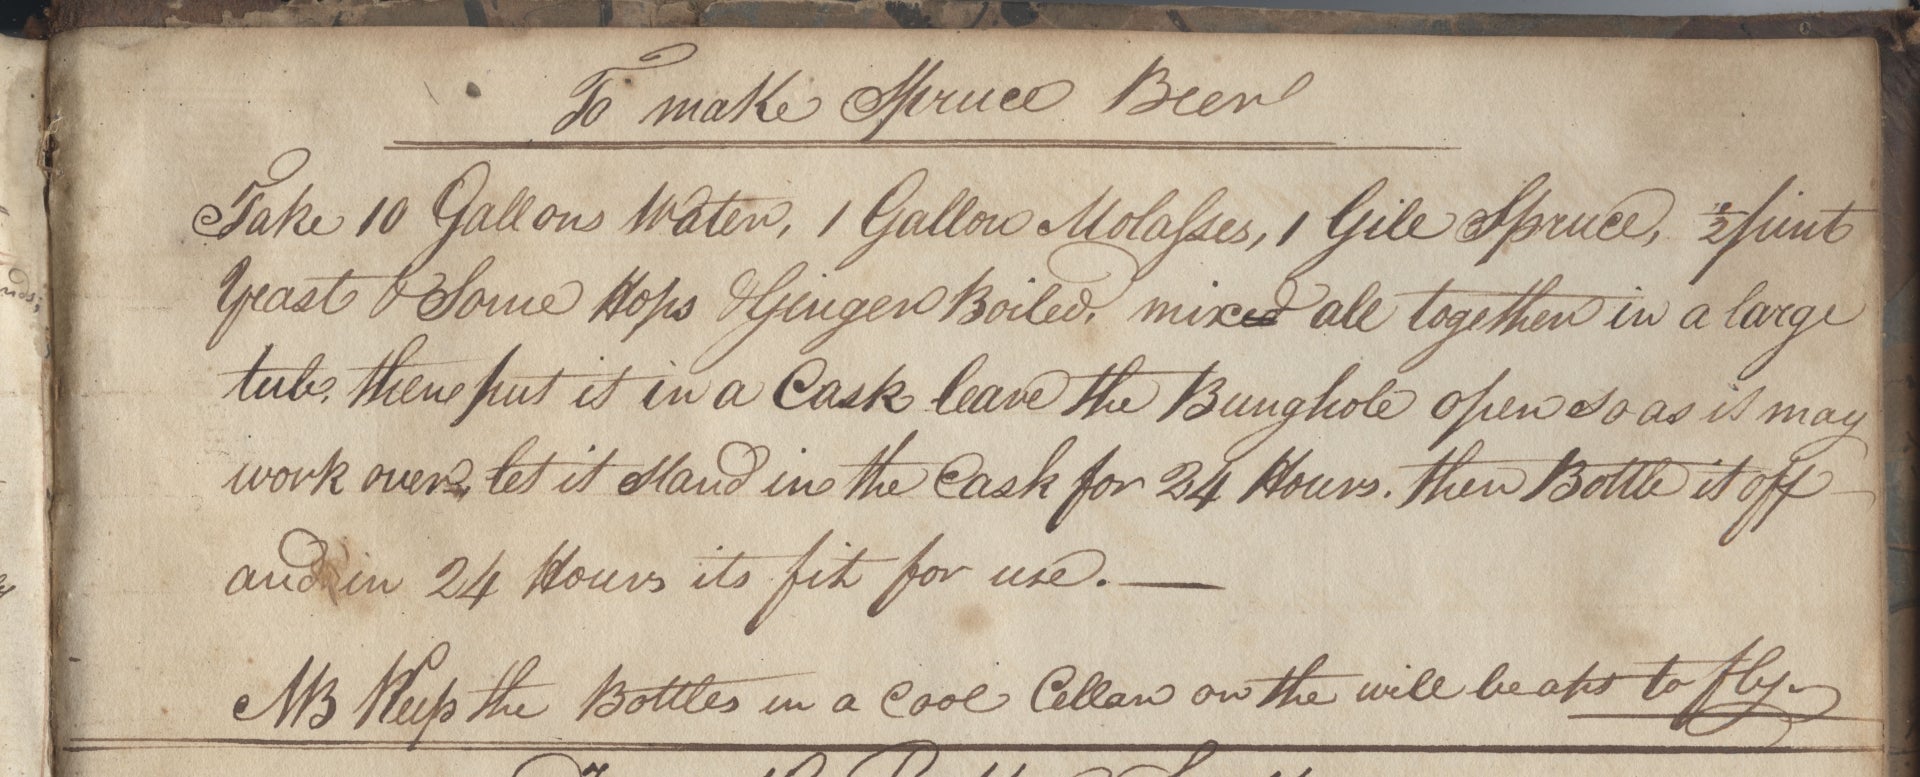 To make Spruce Beer
Take 10 Gallons Water, 1 Gallon Molasses, 1 Gile Spruce, ½ pint
Yeast & Some Hops & Ginger Boiled, mixed all together in a large
tub, then put it in a Cask leave the Bunghole open so as it may
work over, let it stand in the Cask for 24 Hours. then Bottle it off
and in 24 Hours its fit for use. —
NB Keep the Bottles in a Cool Cellar or the will be apt to fly